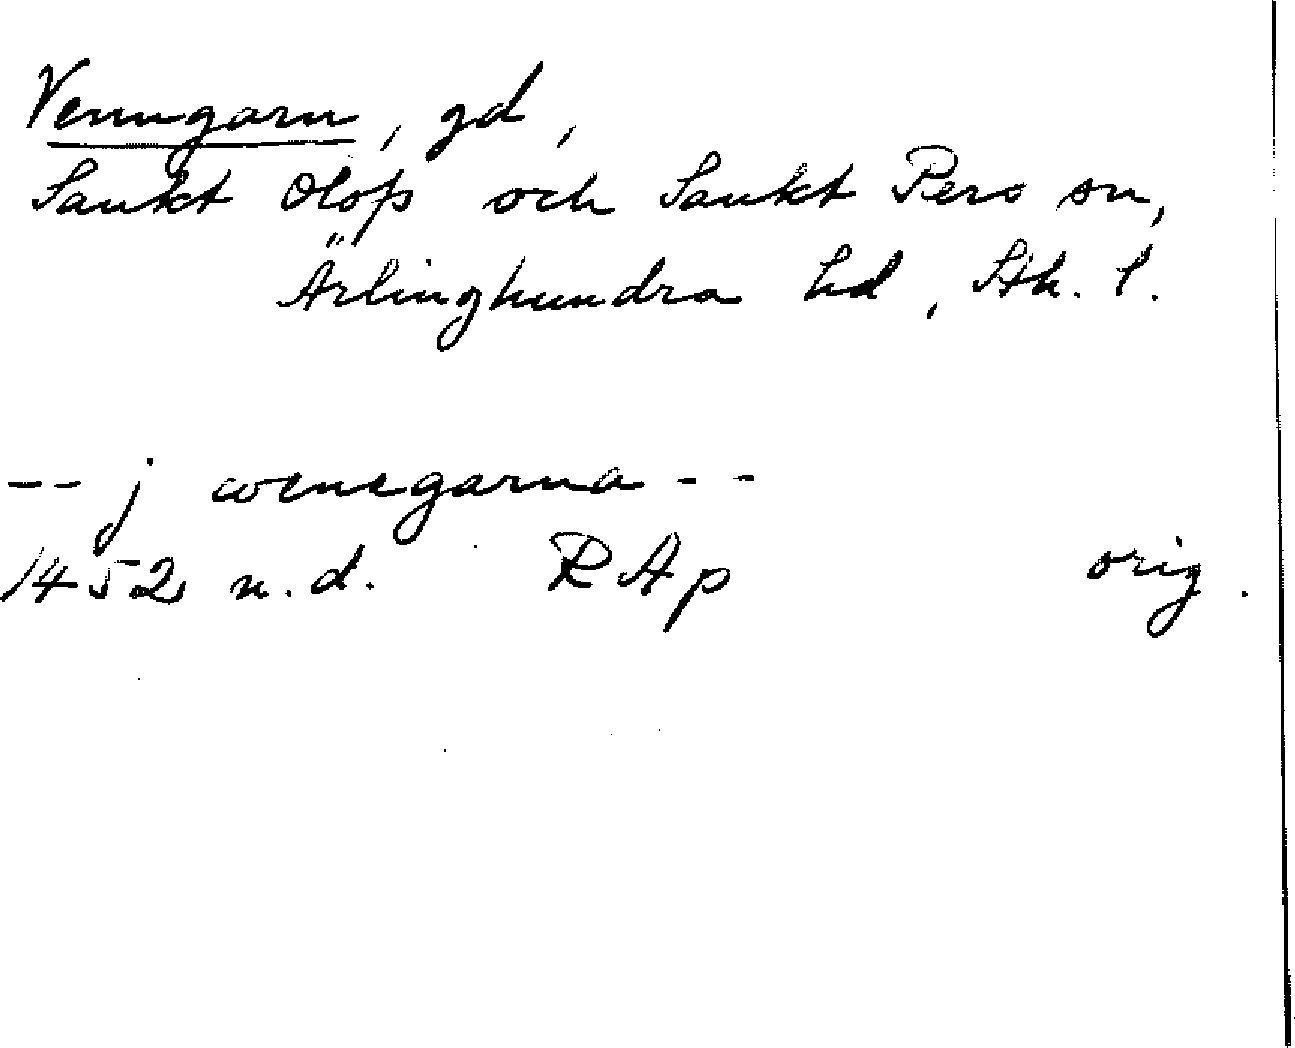 Venngarn, gd,
Sankt Olofs och Sankt Pers sn,
Ärlinghundra hd, Sth. l.
-- j wenegarna --
1452 u.d. RAp orig.